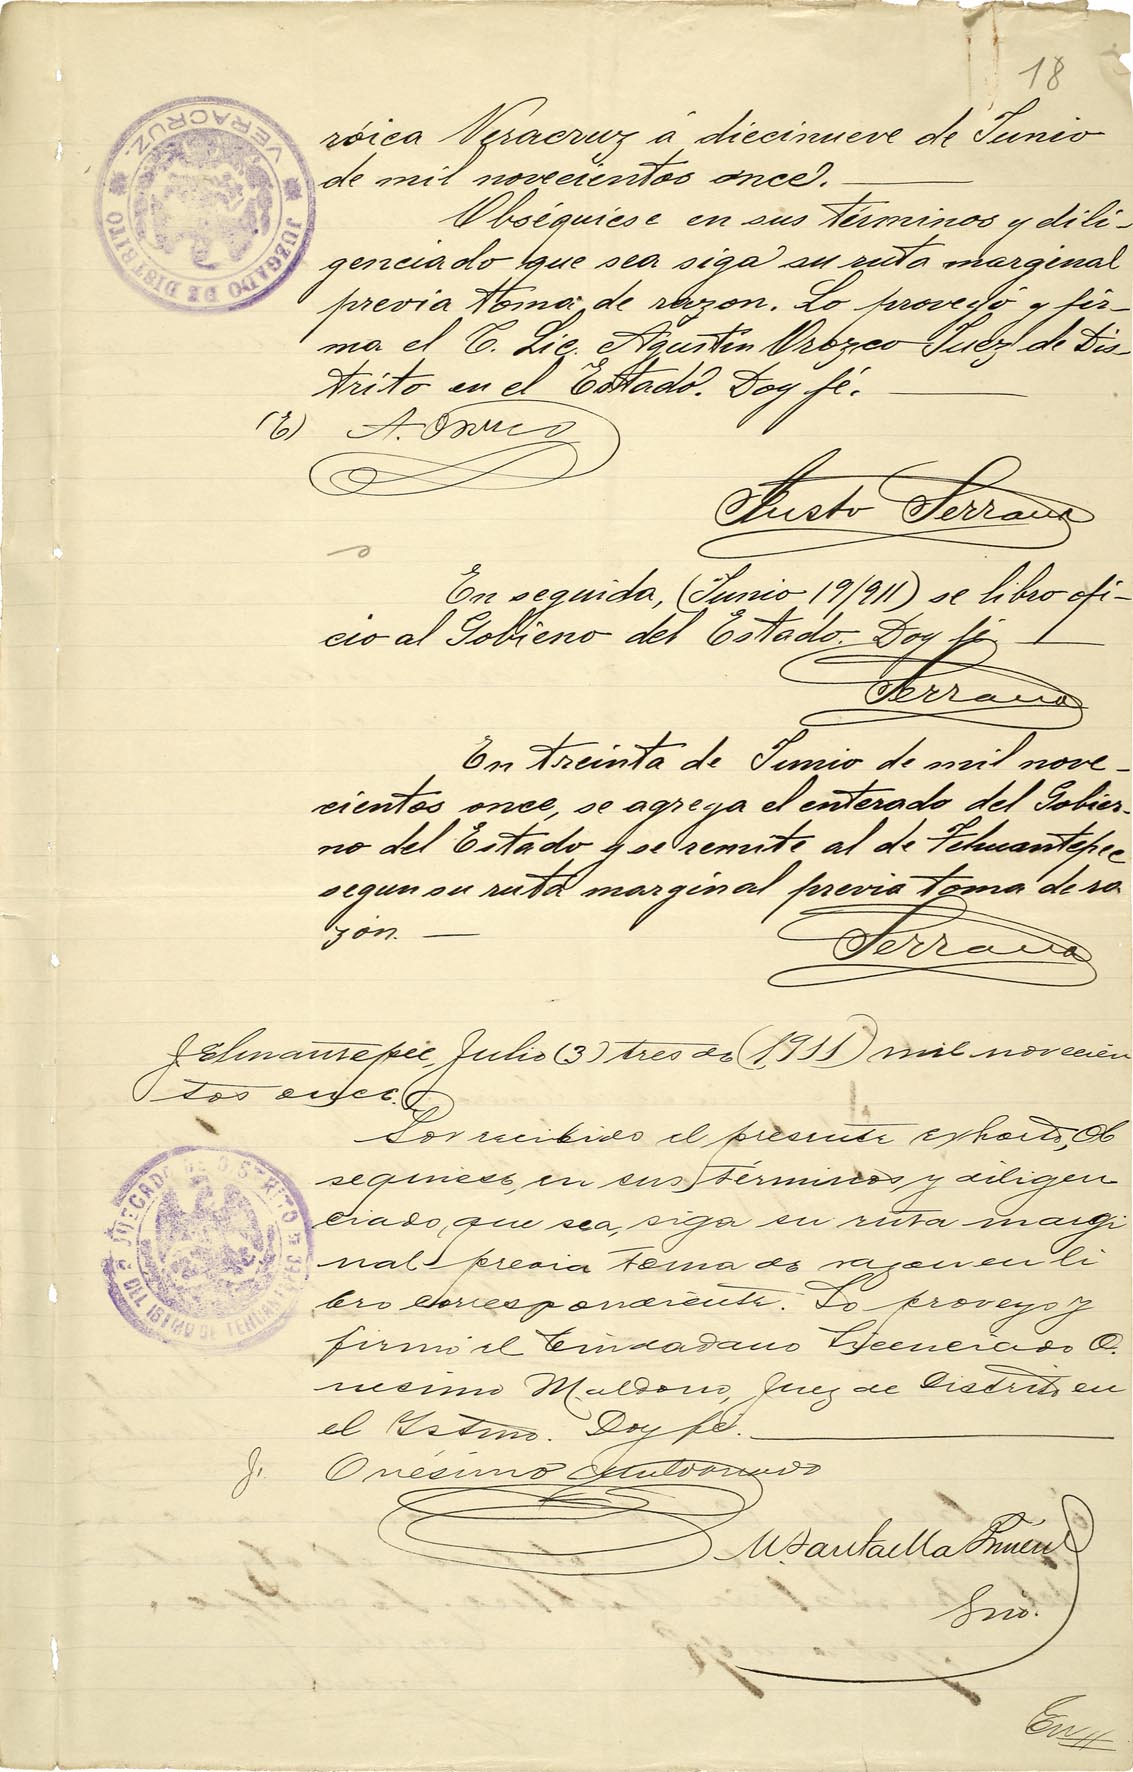 18
JUZGADO DE DISTRITO
VERACRUZ.
róica Veracruz á diecinueve de Junio
de mil novecientos once.
Obséquiese en sus términos y dili-
genciado que sea siga su ruta marginal
previa toma de razon. Lo proveyó y fir-
ma el C. Lic. Agustín Orozco Juez de Dis-
trito en el Estado. Doy fé.
(E) A. Orozco
Justo Serrano
En seguida, (Junio 19/911) se libro ofi-
cio al Gobieno del Estado. Doy fé
Serrano
En treinta de Junio de mil nove-
cientos once, se agrega el enterado del Gobier-
no del Estado y se remite al de Tehuantepec
segun su ruta marginal previa toma de ra
zón.
Serrano
Tehuantepec, Julio (3) tres de (1,911) mil novecien
tos once.
Por recibido el presente exhorto, Ob
sequiese, en sus términos, y diligen
ciado, que sea, siga su ruta margi
nal previa toma de razon en li
bro correspondiente. Lo proveyo y
firmó el Ciudadano Licenciado O.
nesimo Maldono, Juez de Distrito en
el Istmo. Doy fé.
JUZGADO DE DISTRITO
DEL ISTMO DE TEHUANTEPEC
J. Onésimo Maldonado
M. Santaella
Srio.
En